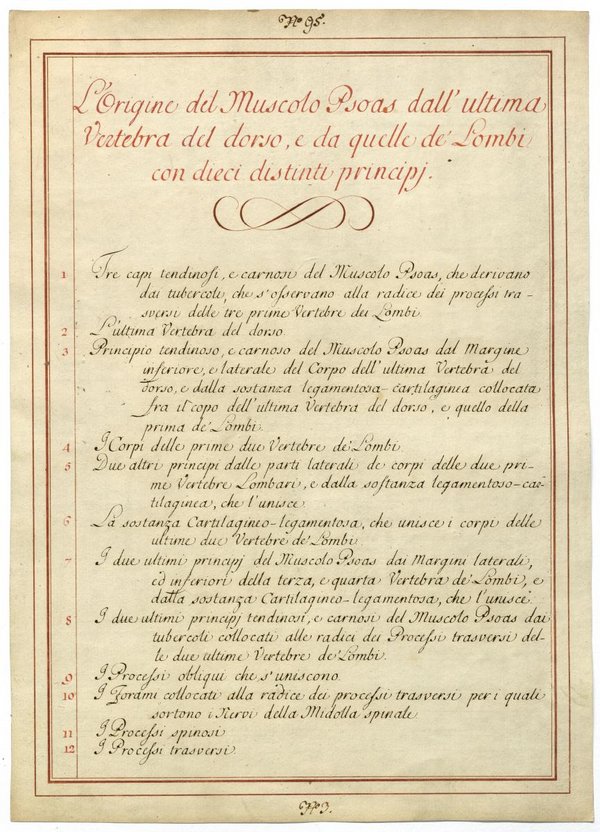 Nº 95.
L'Origine del Muscolo Psoas dall'ultima
Vertebra del dorso, e da quelle de' Lombi
con dieci distinti principj.
1 Tre capi tendinosi, e carnosi del Muscolo Psoas, che derivano
dai tubercoli, che s'osservano alla radice dei processi tra-
sversi delle tre prime Vertebre dei Lombi.
2 L'ultima Vertebra del dorso.
3 Principio tendinoso, e carnoso del Muscolo Psoas dal Margine
inferiore, e laterale del Corpo dell'ultima Vertebra del
Dorso, e dalla sostanza legamentosa-cartilaginea collocata
fra il copo dell'ultima Vertebra del dorso, e quello della
prima de' Lombi.
4 I Corpi delle prime due Vertebre de' Lombi.
5 Due altri principi dalle parti laterali de corpi delle due pri-
mi Vertebre Lombari, e dalla sostanza legamentoso-car-
tilaginea, che l'unisce.
6 La sostanza Cartilagineo-legamentosa, che unisce i corpi delle
ultime due Vertebre de' Lombi.
7 I due ultimi principj del Muscolo Psoas dai Margini laterali,
ed inferiori della terza, e quarta Vertebra de' Lombi, e
dalla sostanza Cartilagineo-legamentosa, che l'unisce.
8 I due ultimi principj tendinosi, e carnosi del Muscolo Psoas dai
tubercoli collocati alle radici dei Processi trasversi del-
le due ultime Vertebre de' Lombi.
9 I Processi obliqui che s'uniscono.
10 I Forami collocati alla radice dei processi trasversi per i quale
sortono i Nervi della Midolla spinale.
11 I Processi spinosi
12 I Processi trasversi.